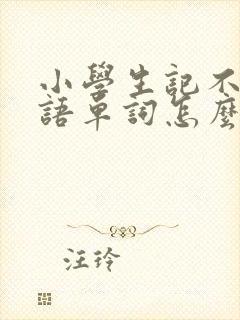 小學生記不
語單詞怎麼
汪玲